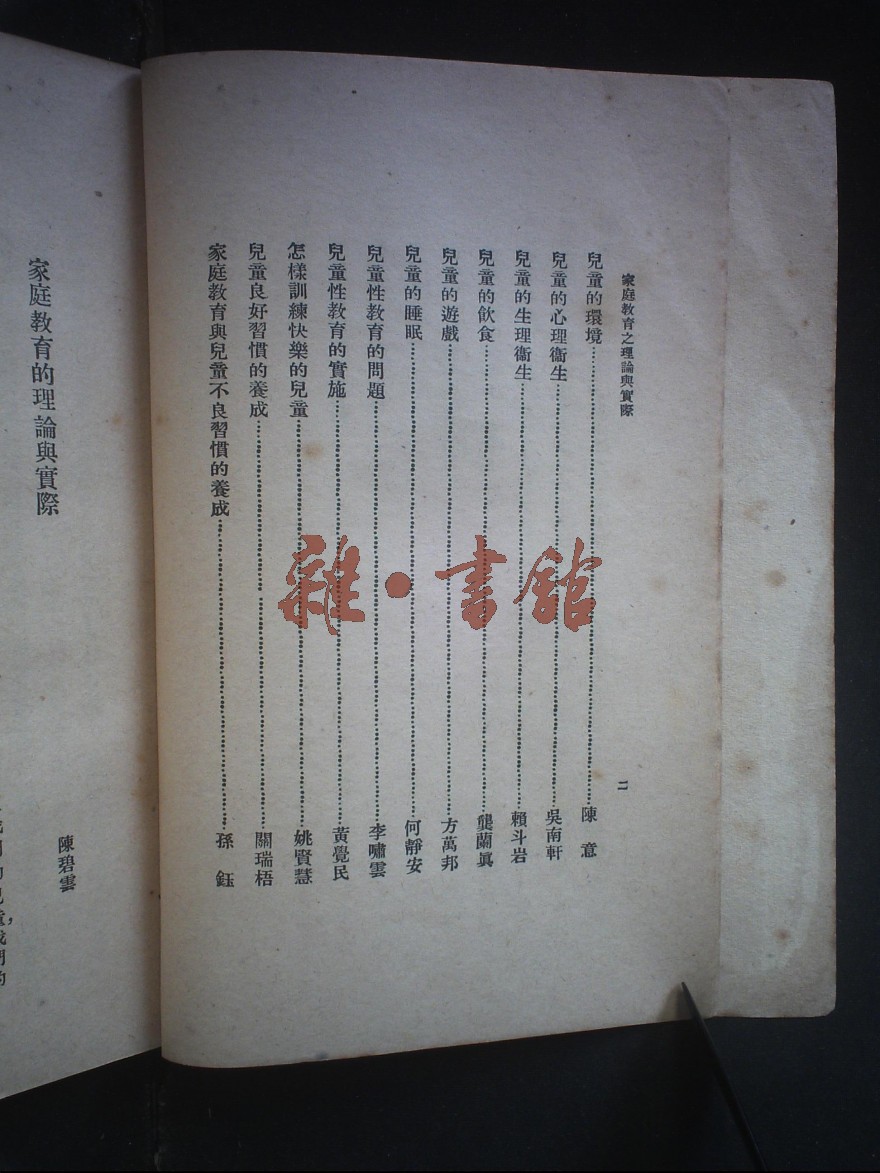 家庭教育之理論與實際
二
兒童的環境……陳 意
兒童的心理衞生……吳南軒
兒童的生理衞生……賴斗岩
兒童的飲食……龔蘭眞
兒童的遊戲……方萬邦
兒童的睡眠……何靜安
兒童性教育的問題……李嘯雲
兒童性教育的實施……黃覺民
怎樣訓練快樂的兒童……姚賢慧
兒童良好習慣的養成……關瑞梧
家庭教育與兒童不良習慣的養成……孫 鈺
雜·書館
家庭教育的理論與實際
陳碧雲